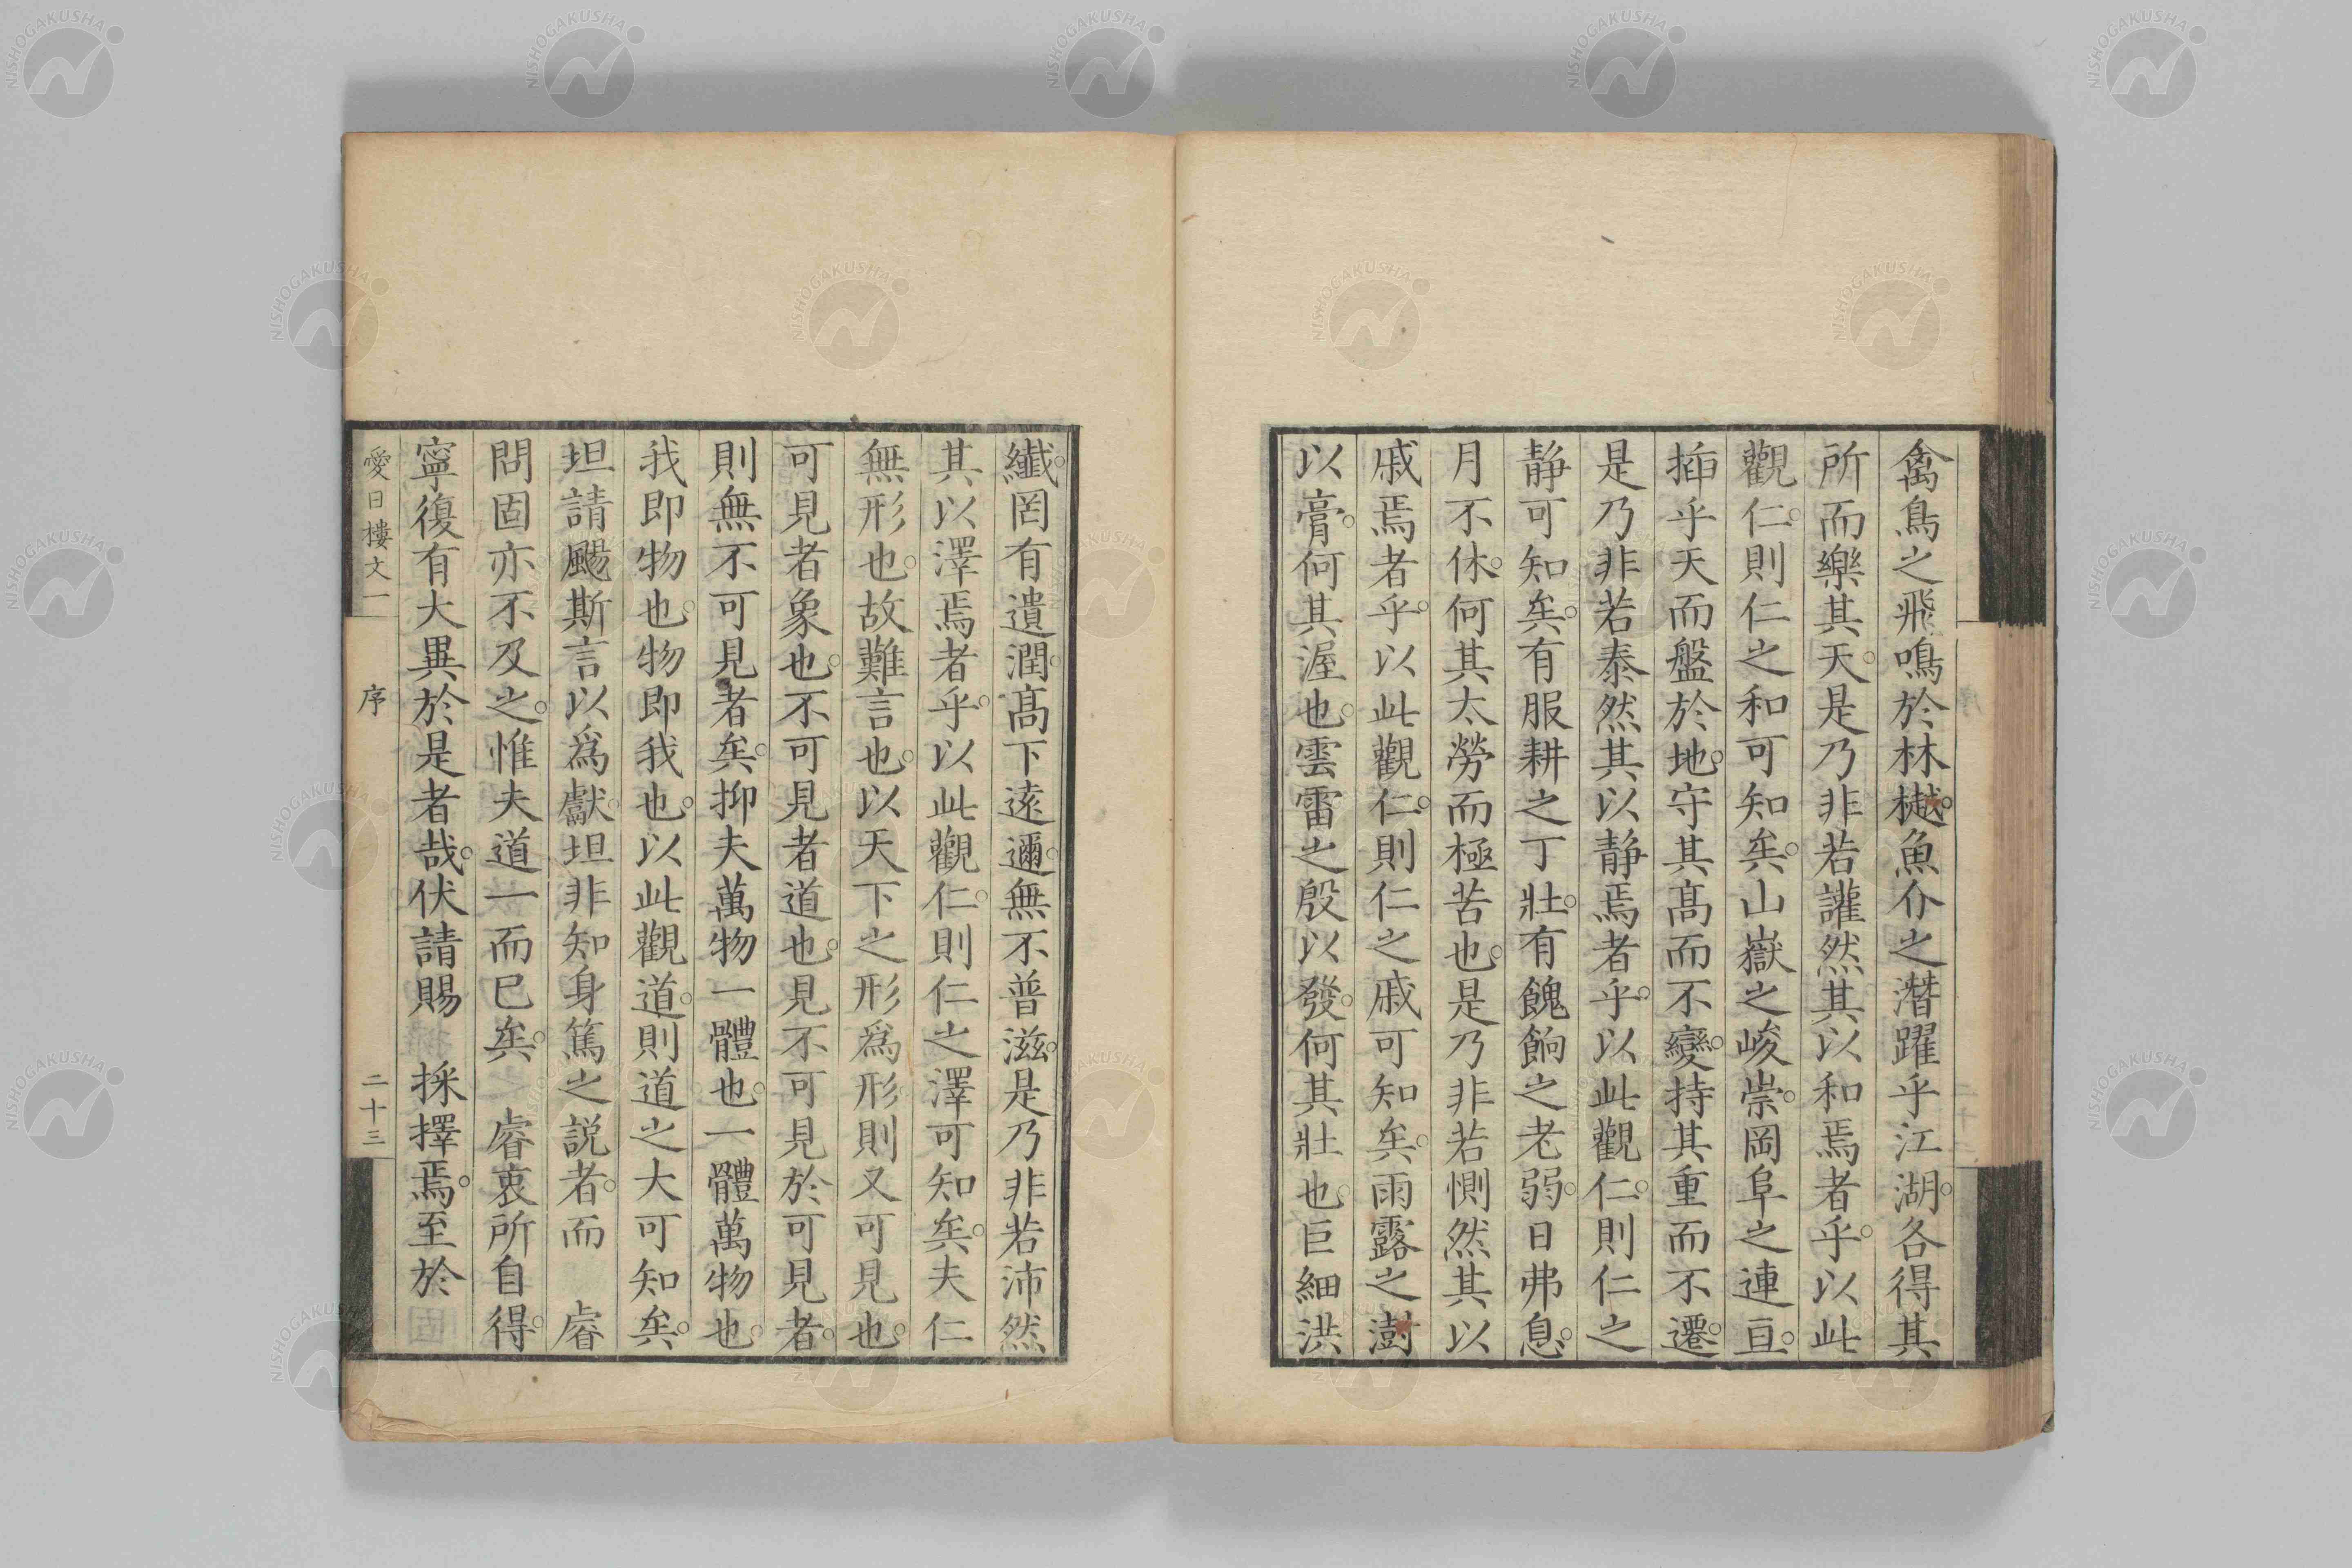 禽鳥之飛鳴於林樾。魚介之潛躍乎江湖。各得其
所而樂其天。是乃非若讙然其以和焉者乎。以此
觀仁。則仁之和可知矣。山嶽之峻崇。岡阜之連亘。
揷乎天而盤於地。守其髙而不變。持其重而不遷。
是乃非若泰然其以静焉者乎。以此觀仁。則仁之
静可知矣。有服耕之丁壯。有餽餉之老弱。日弗息。
月不休。何其太勞而極苦也。是乃非若惻然其以
戚焉者乎。以此觀仁。則仁之戚可知矣。雨露之澍
以膏。何其渥也。雲雷之殷以發。何其壯也。巨細洪
纖。罔有遺潤。髙下遠邇。無不普滋。是乃非若沛然
其以澤焉者乎。以此觀仁。則仁之澤可知矣。夫仁
無形也。故難言也。以天下之形爲形則又可見也。
可見者象也。不可見者道也。見不可見於可見者。
則無不可見者矣。抑夫萬物一體也。一體萬物也。
我即物也。物即我也。以此觀道。則道之大可知矣。
坦請颺斯言以爲獻。坦非知身篤之説者。而 睿
問固亦不及之。惟夫道一而已矣。 睿衷所自得。
寧復有大異於是者哉。伏請賜 採擇焉。至於
愛日樓文一 序 二十三
NISHOGAKUSHA